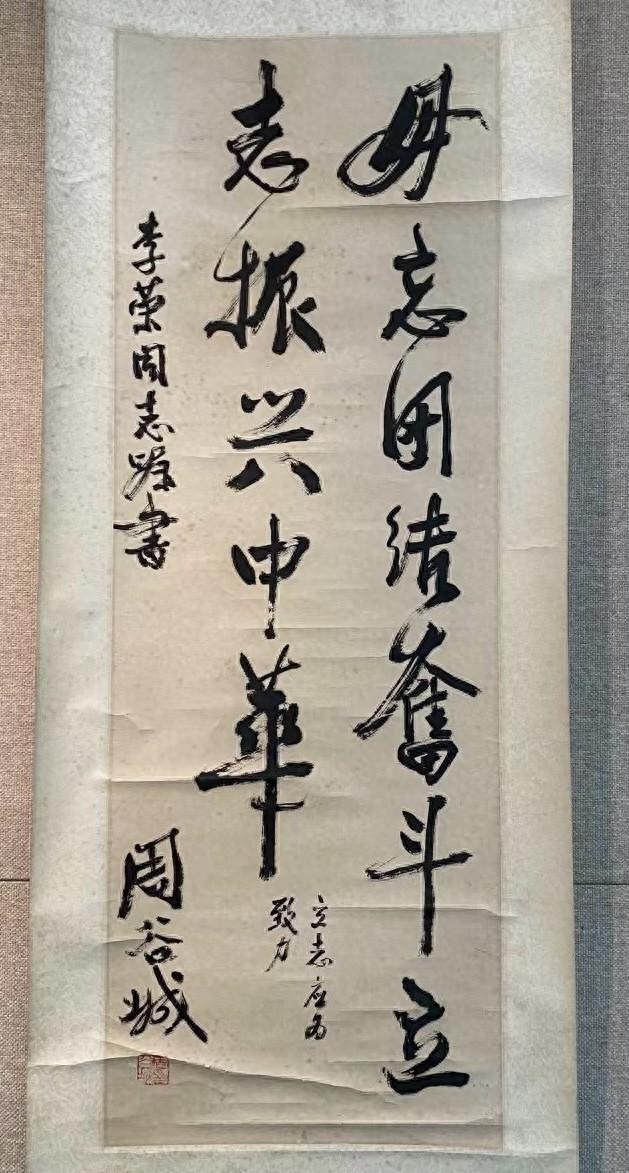 毋忘团结奋斗立
志振兴中華
立志应为
致力
李荣同志嘱书
周谷城